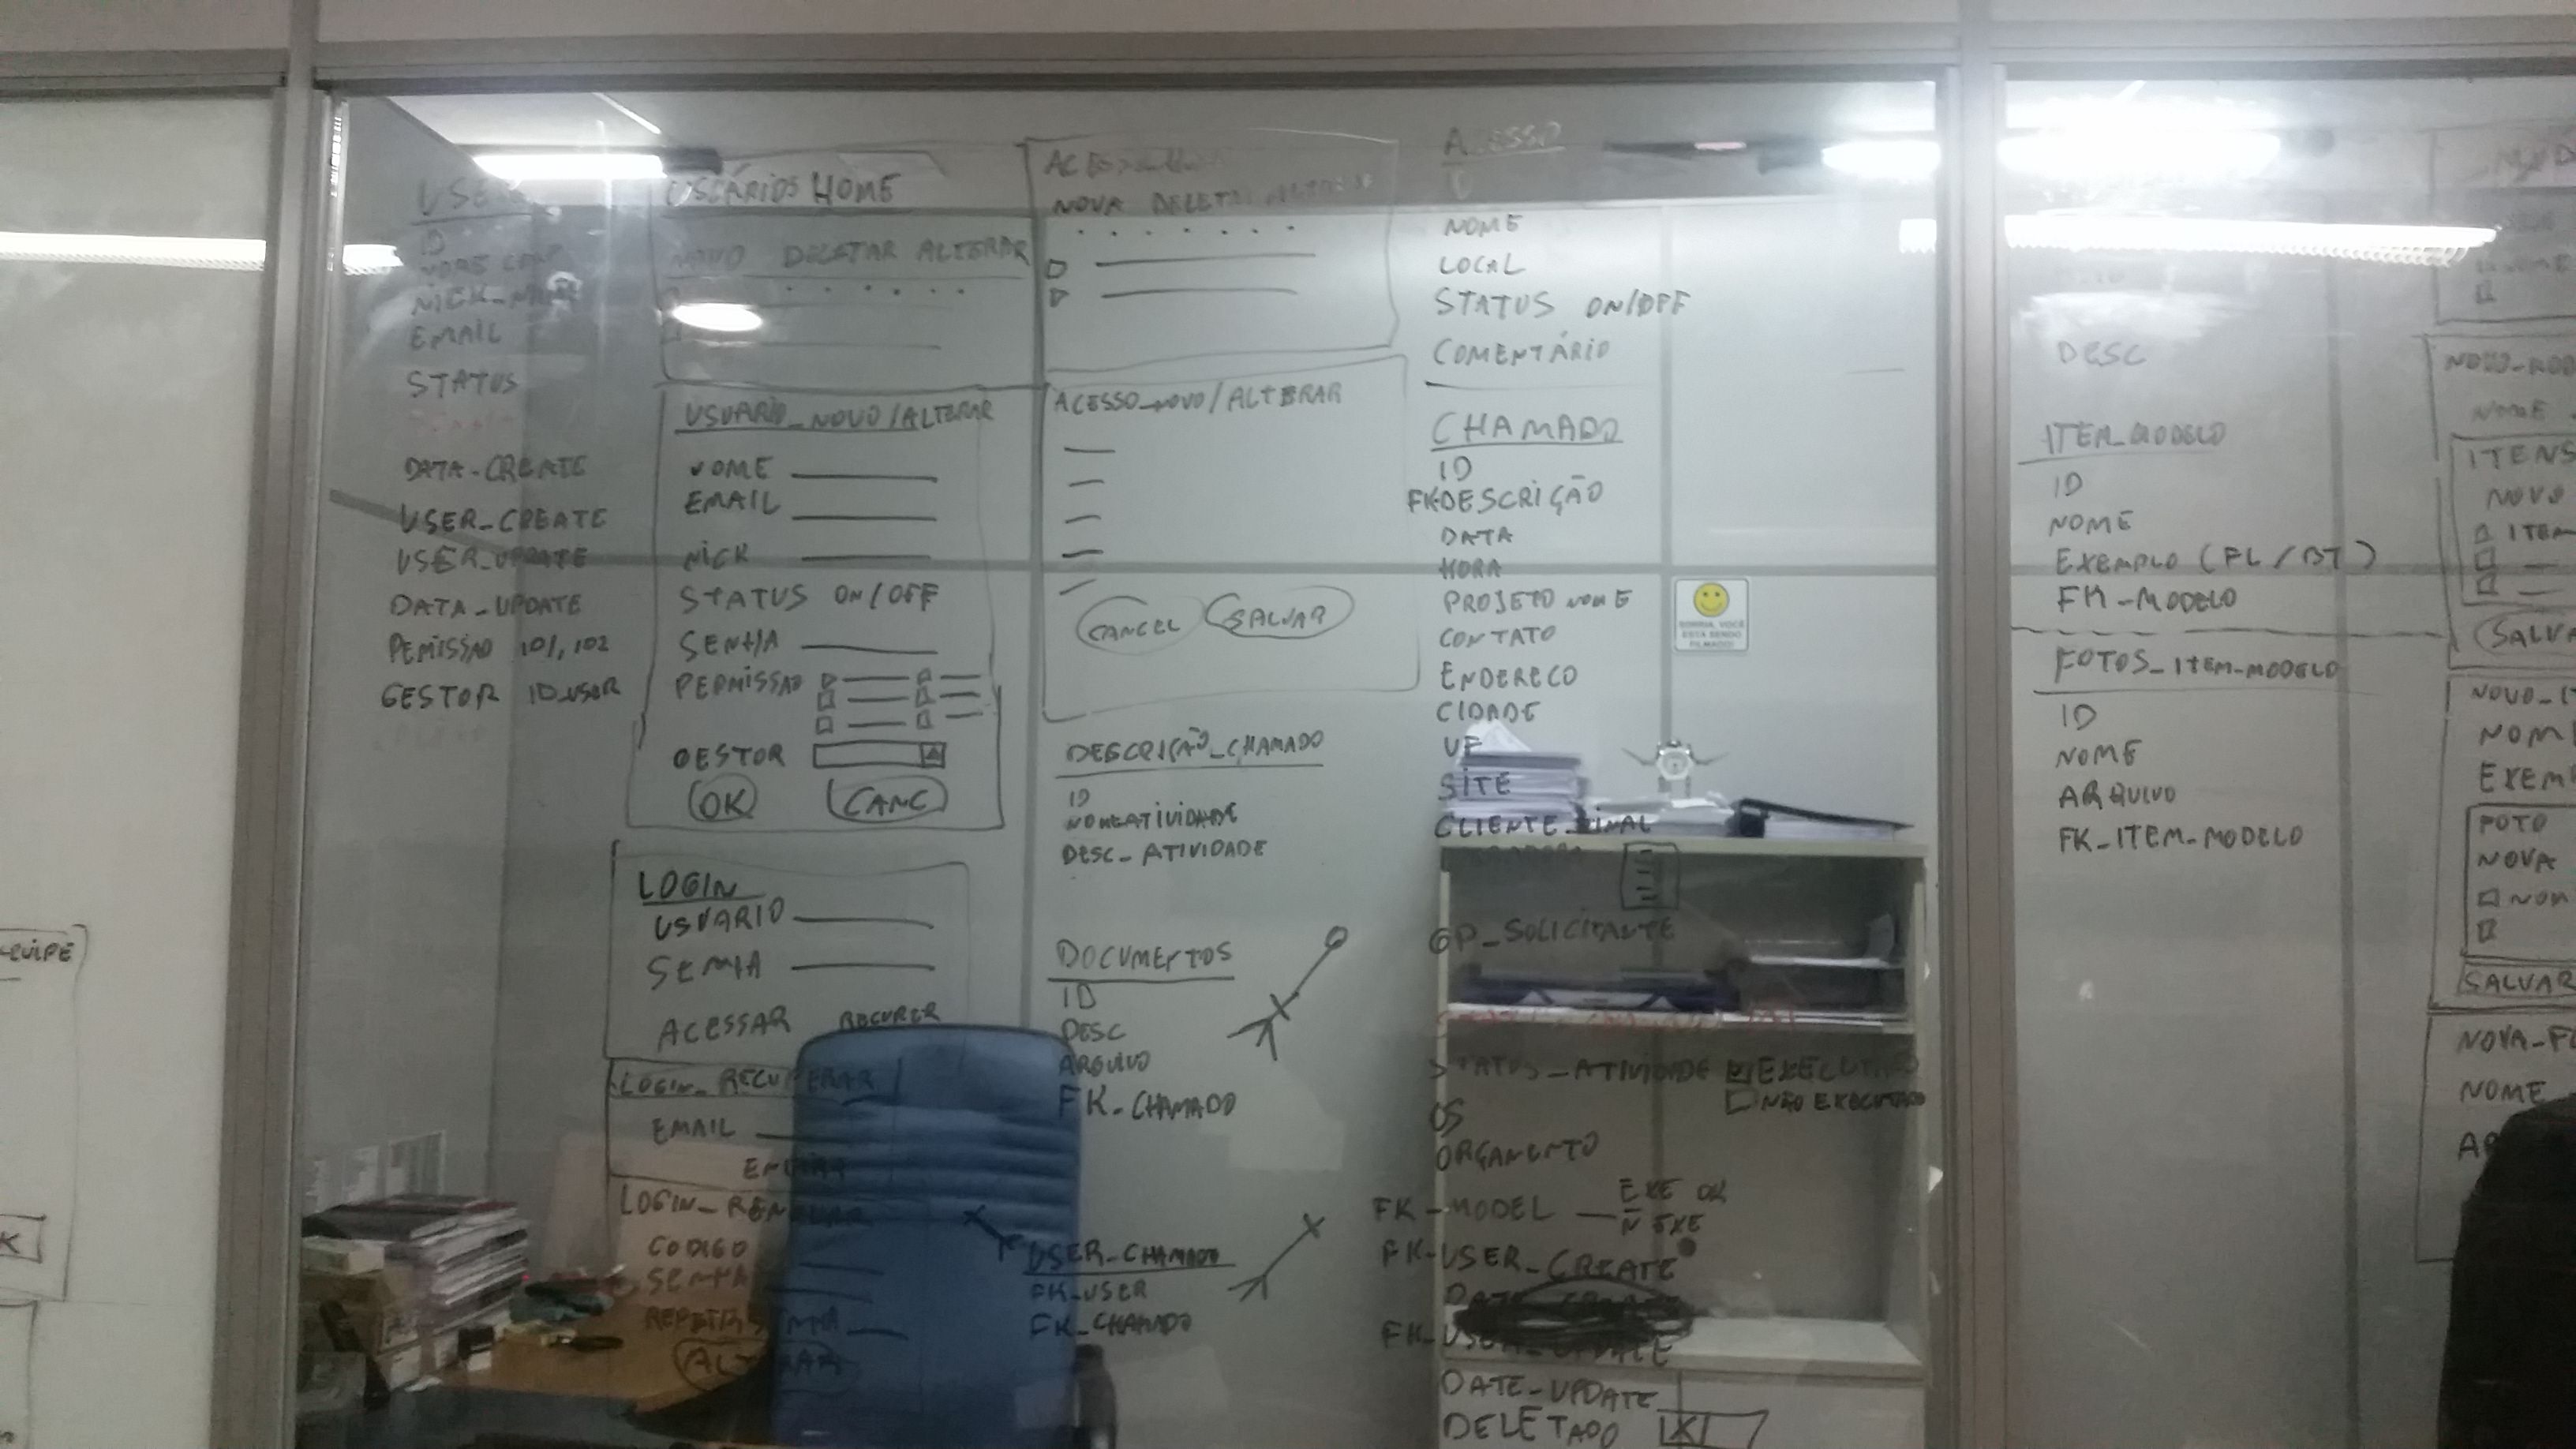 EQUIPE
K
ID
EMAIL
STATUS
DATA_CREATE
USER_CREATE
USER_UPDATE
DATA_UPDATE
PEMISSAO 101, 102
GESTOR ID_USER
USUÁRIOS HOME
NOVO DELETAR ALTERAR
USUARIO_NOVO/ALTERAR
NOME
EMAIL
NICK
STATUS ON/OFF
SENHA
PERMISSAO
GESTOR
OK CANC
LOGIN
USUARIO
SENHA
ACESSAR RECURER
LOGIN_RECUPERAR
EMAIL
ENVIAR
LOGIN_RENOVAR
CODIGO
SENHA
REPETIR SENHA
ALTERAR
NOVA
ACESSO_NOVO/ALTERAR
CANCEL SALVAR
DESCRIÇÃO_CHAMADO
ID
NOME ATIVIDADE
DESC_ATIVIDADE
DOCUMENTOS
ID
DESC
ARQUIVO
FK_CHAMADO
USER_CHAMADO
FK_USER
FK_CHAMADO
ACESSO
ID
NOME
LOCAL
STATUS ON/OFF
COMENTÁRIO
CHAMADO
ID
FK DESCRIÇÃO
DATA
HORA
PROJETO NOME
CONTATO
ENDERECO
CIDADE
UF
SITE
CLIENTE_FINAL
GP_SOLICITANTE
STATUS_ATIVIDADE EXECUTADO
NÃO EXECUTADO
OS
ORÇAMENTO
FK-MODEL EXE OK
N EXE
FK-USER_CREATE
FK-USER_UPDATE
DATE_UPDATE
DELETADO
SORRIA, VOCÊ
ESTÁ SENDO
FILMADO!
DESC
ITEM_MODELO
ID
NOME
EXEMPLO (FL/BT)
FK-MODELO
FOTOS_ITEM-MODELO
ID
NOME
ARQUIVO
FK_ITEM-MODELO
NOME
ITENS
NOVO
ITEM
SALVA
NOVO_IT
NOM
EXEM
FOTO
NOVA
NOM
SALVAR
NOVA_F
NOME